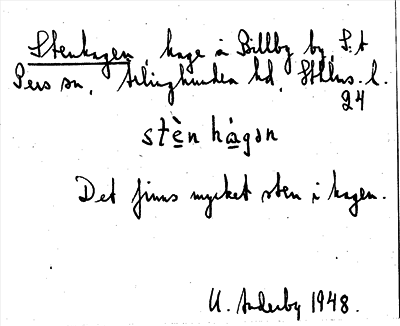 Stenhagen, hage å Billby by, S:t
Pers sn, Ærlinghundra hd, Sthlms l.
24
stὲn hàgən
Det finns mycket sten i hagen.
U. Anderby 1948.